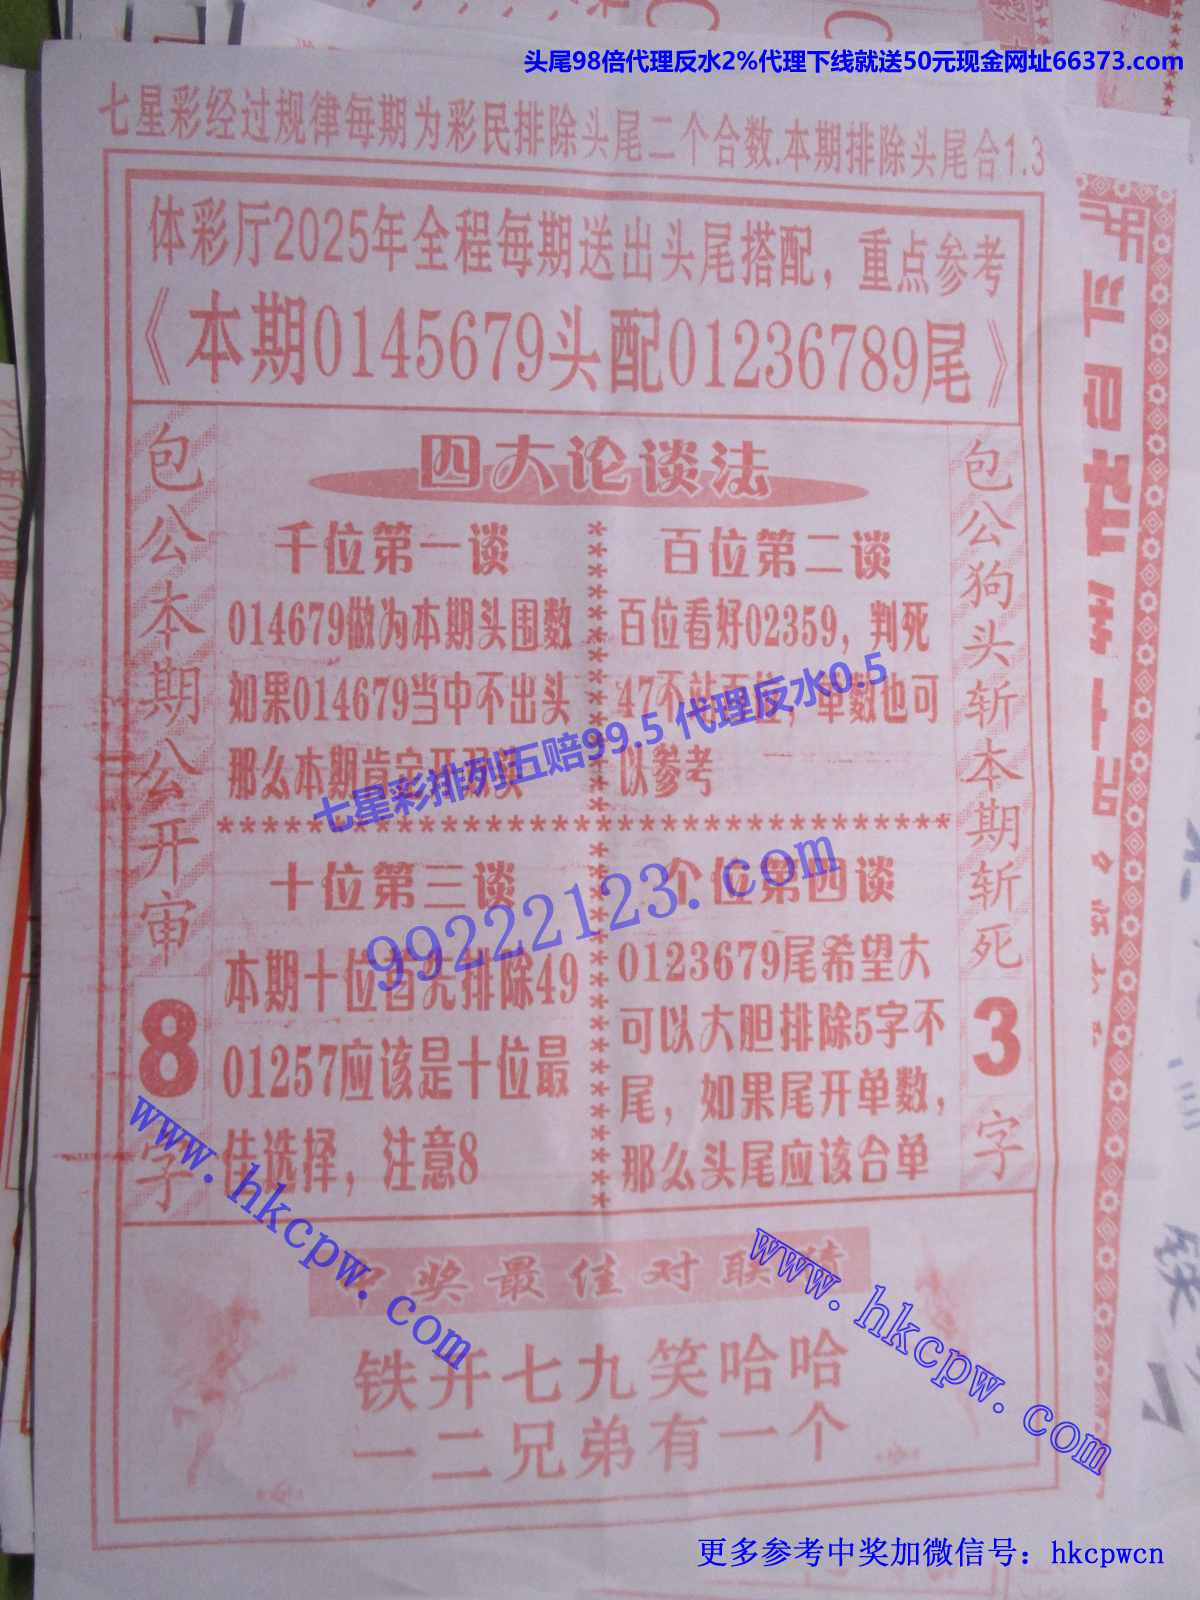 头尾98倍代理反水2%代理下线就送50元现金网址66373.com
七星彩经过规律每期为彩民排除头尾二个合数.本期排除头尾合1.3
体彩厅2025年全程每期送出头尾搭配，重点参考
《本期0145679头配01236789尾》
包公本期公开审
8
字
四大论谈法
千位第一谈
014679做为本期头围数
如果014679当中不出头
那么本期肯定开
百位第二谈
百位看好02359，判死
47不站百位，单数也可
以参考
七星彩排列五赔99.5 代理反水0.5
99222123.com
十位第三谈
本期十位首先排除49
01257应该是十位最
佳选择，注意8
个位第四谈
0123679尾希望大
可以大胆排除5字不
尾，如果尾开单数，
那么头尾应该合单
包公狗头斩本期斩死
3
字
www.hkcpw.com
www.hkcpw.com
中奖最佳对联猜
铁开七九笑哈哈
一二兄弟有一个
更多参考中奖加微信号：hkcpwcn